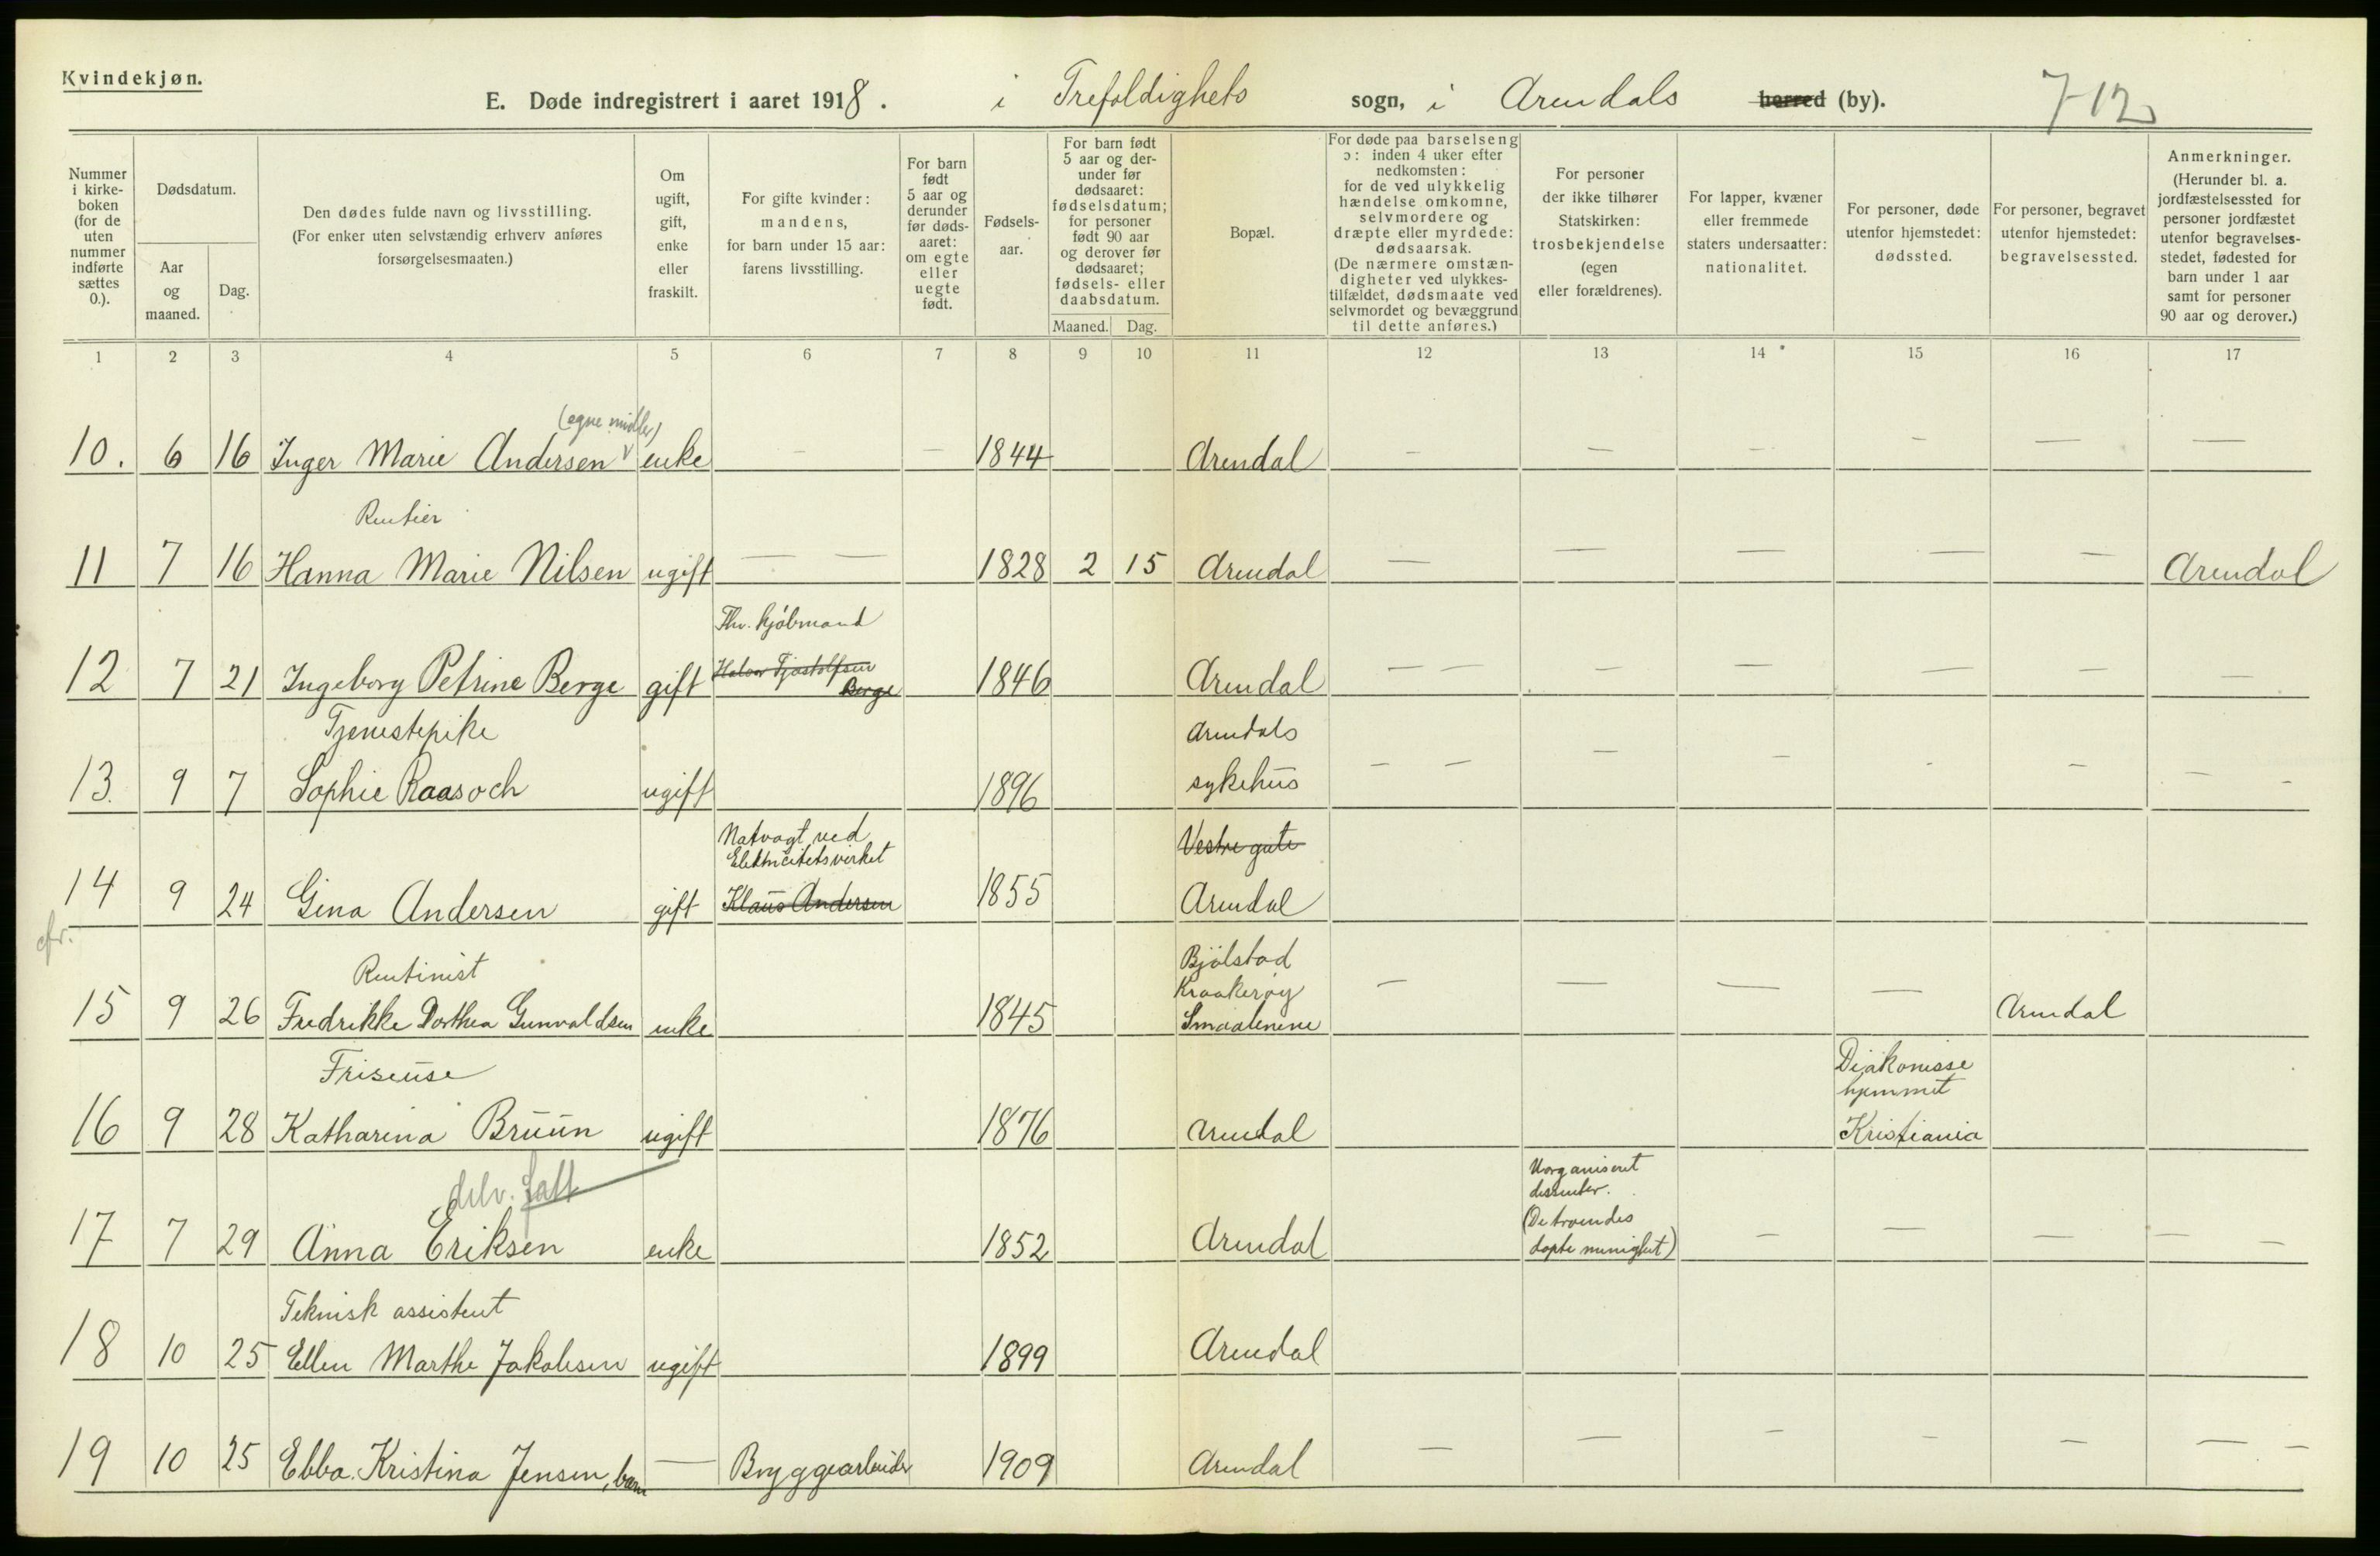 Kvindekjøn.
E. Døde indregistrert i aaret 1918. i Trefoldighets sogn, i Arendals herred (by). 7-12
Nummer i kirke- boken (for de uten nummer indførte sættes 0.).
Dødsdatum.
Aar og maaned.
Dag.
Den dødes fulde navn og livsstilling.
(For enker uten selvstændig erhverv anføres
forsørgelsesmaaten.)
Om ugift, gift, enke eller fraskilt.
For gifte kvinder: mandens, for barn under 15 aar: farens livsstilling.
For barn født 5 aar og derunder før døds- aaret: om egte eller uegte født.
Fødsels- aar.
For barn født 5 aar og der- under før dødsaaret: fødselsdatum; for personer født 90 aar og derover før dødsaaret; fødsels- eller daabsdatum.
Maaned. Dag.
Bopæl.
For døde paa barselseng ɔ: inden 4 uker efter nedkomsten: for de ved ulykkelig hændelse omkomne, selvmordere og dræpte eller myrdede: dødsaarsak. (De nærmere omstæn- digheter ved ulykkes- tilfældet, dødsmaate ved selvmordet og bevæggrund til dette anføres.)
For personer der ikke tilhører Statskirken: trosbekjendelse (egen eller forældrenes).
For lapper, kvæner eller fremmede staters undersaatter: nationalitet.
For personer, døde utenfor hjemstedet: dødssted.
For personer, begravet utenfor hjemstedet: begravelsessted.
Anmerkninger. (Herunder bl. a. jordfæstelsessted for personer jordfæstet utenfor begravelses- stedet, fødested for barn under 1 aar samt for personer 90 aar og derover.)
1 2 3 4 5 6 7 8 9 10 11 12 13 14 15 16 17
(egne midler)
10. 6 16 Inger Marie Andersen enke — — 1844 Arendal — — — — — —
Rentier
11 7 16 Hanna Marie Nilsen ugift — — 1828 2 15 Arendal — — — — — Arendal
Fhv. kjøbmand
Halvor Tjøstolfsen
12 7 21 Ingeborg Petrine Berge gift Berge 1846 Arendal — — — — — — —
Tjenestepike Arendals
13. 9 7 Sophie Raasoch ugift 1896 sykehus — — — — - — — -
Natvagt ved Vestre gate
Elektricitetsverket
14 9 24 Gina Andersen gift Klaus Andersen 1855 Arendal
cfr.
Rentinist Bjølstad
Kraakerøy
15 9 26 Fredrikke Dorthea Gunvaldsen enke 1845 Smaalenene — — — — Arendal
Friseuse Diakonisse
hjemmet
16 9 28 Katharina Bruun ugift 1876 Arendal Kristiania
delv. fatt Uorganiseret
dissenter.
(De troendes
17 7 29 Anna Eriksen enke 1852 Arendal døpte menighet) — — — — —
Teknisk assistent
18 10 25 Ellen Marthe Jakobsen ugift 1899 Arendal
19 10 25 Ebba Kristina Jensen, barn — Bryggearbeider 1909 Arendal — — — — — — —